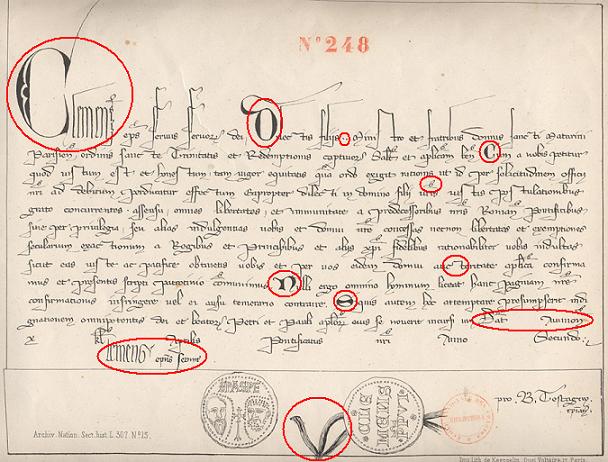 Nº 248
Clemens eps servus servor dei Dilectis filiis .. Ministro et fratribus domus sancti Maturini
Parisien ordinis sancte Trinitatis et Redemptionis captivor Salt et aplicam ben Cum a nobis petitur
quod iustum est et honestum tam vigor equitatis quam ordo exigit rationis ut id per sollicitudinem officii
nri ad debitum perducatur effectum Eapropter dilecti in domino filii vris iustis postulationibus
grato concurrentes assensu omnes libertates et immunitates a predecessoribus nris Romanis Pontificibus
sive per privilegia seu alias indulgentias vobis et domui vre concessas necnon libertates et exemptiones
secularium exactionum a Regibus et Principibus et aliis xpi fidelibus rationabiliter vobis indultas
sicut eas iuste et pacifice obtinetis vobis et per vos eidem domui auctoritate aplica confirma
mus et presentis scripti patrocinio communimus Nulli ergo omnino hominum liceat hanc paginam nre
confirmationis infringere vel ei ausu temerario contraire Siquis autem hec attemptare presumpserit indi
gnationem omnipotentis dei et beator Petri et Pauli aplor eius se noverit incursur Dat Avinion
x kl Aprilis Pontificatus nri Anno Secundo
Clemens eps
SPASPE
CLEMENS PAPA
pro. B.
Archiv. Nation. Sect. hist. L. 307. Nº 15.
Imp. lith. de Kaeppelin, Quai Voltaire 17 Paris